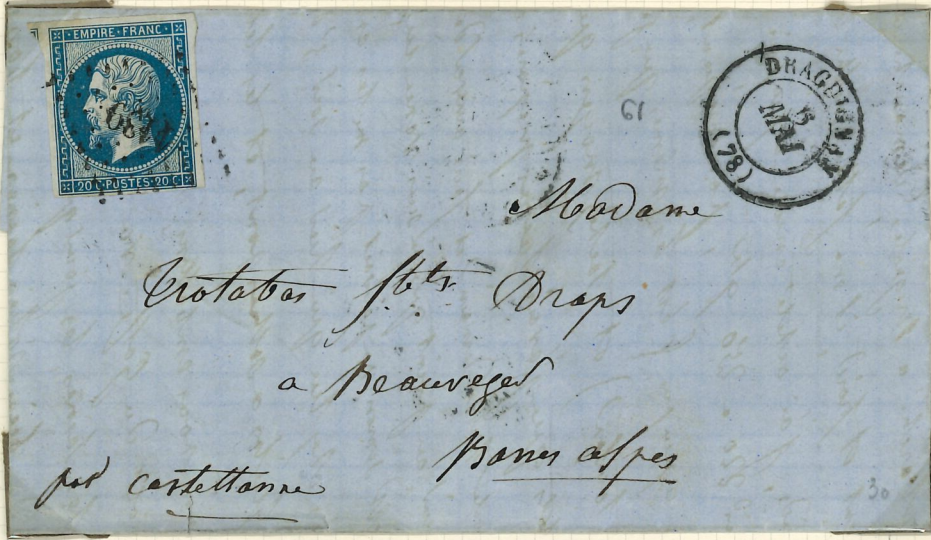 EMPIRE·FRANC·
20 C·POSTES·20 C·
61
DRAGUIGNAN
5
MAI
(78)
Madame
Trotabas fbts Draps
a Beauvezer
Basses alpes
par castellanne
30